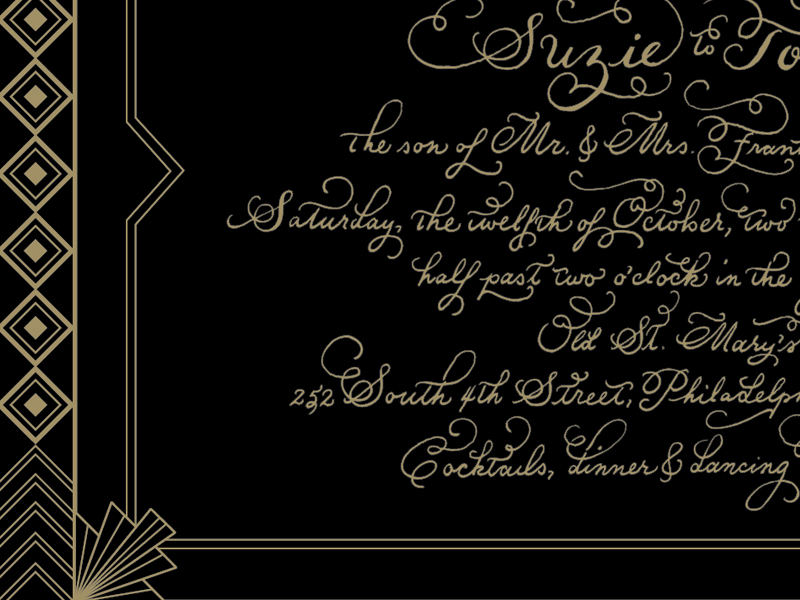 Suzie to To
the son of Mr. & Mrs. Fran
Saturday, the twelfth of October, two
half past two o'clock in the
Old St. Mary's
252 South 4th Street, Philadelph
Cocktails, dinner & dancing